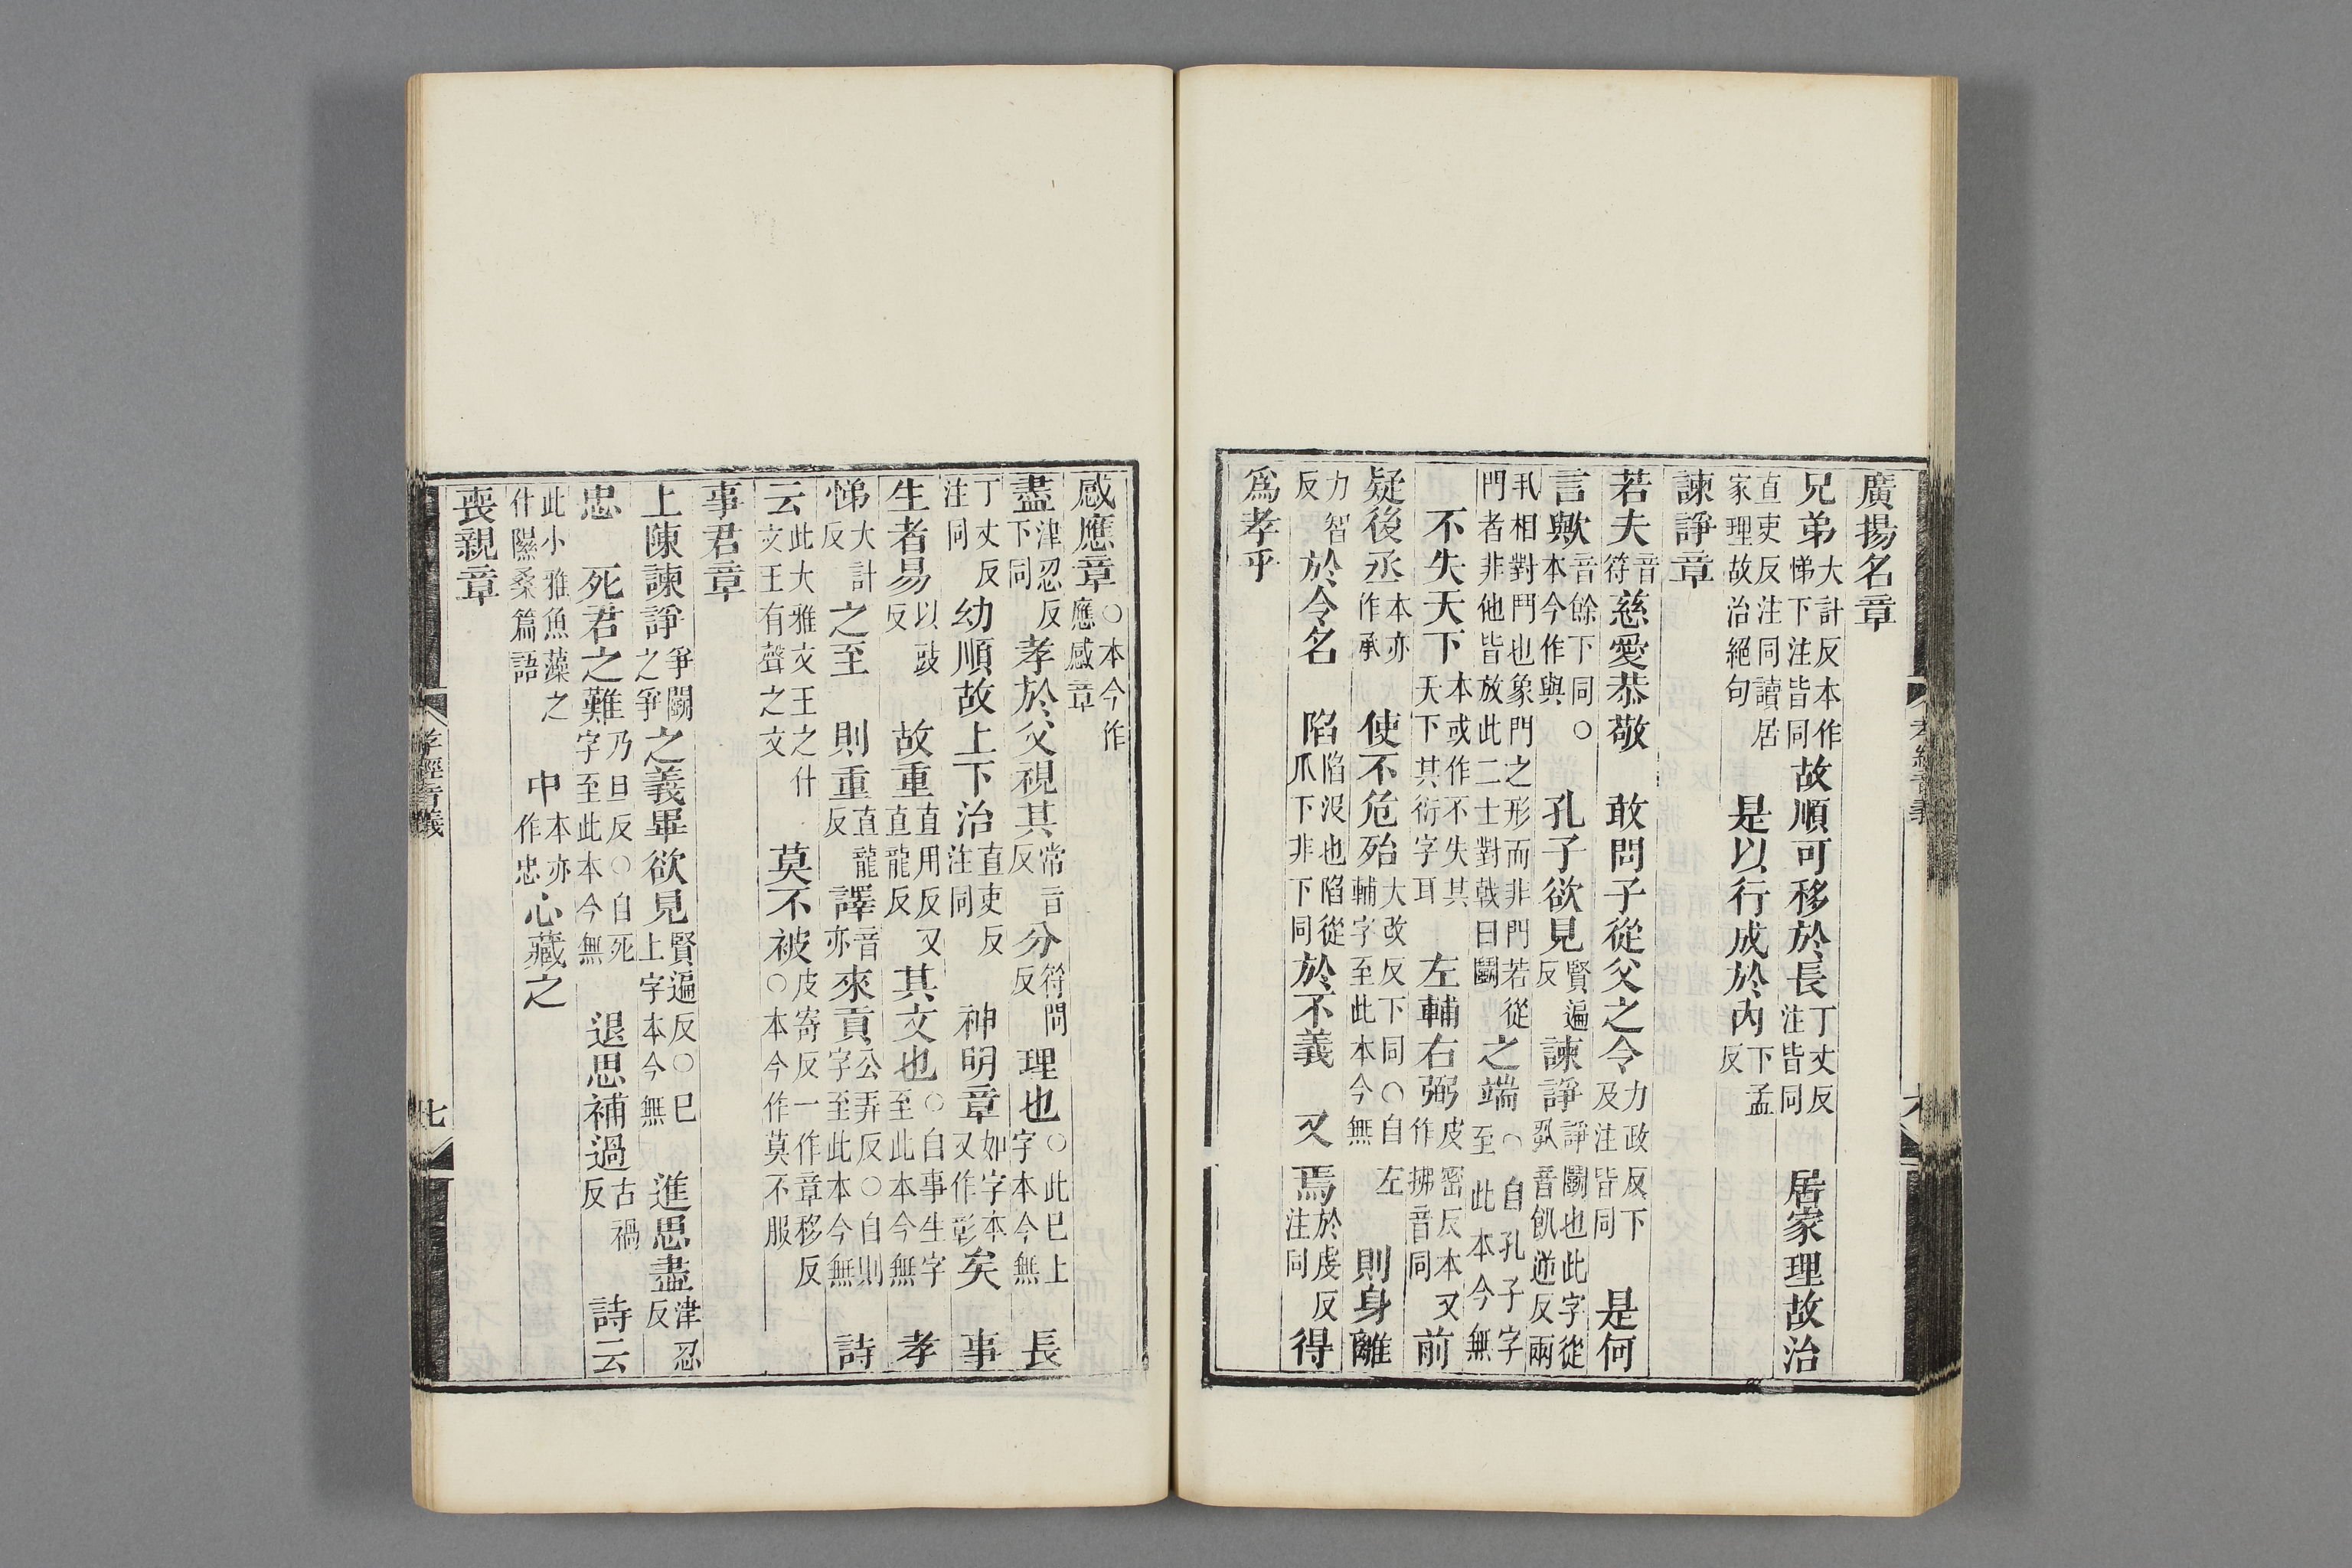 廣揚名章
兄弟大計反本作悌下注皆同故順可移於長丁丈反注皆同 居家理故治
直吏反注同讀居家理故治絕句 是以行成於內下孟反
諫諍章
若夫音符慈愛恭敬 敢問子從父之令力政反下及注皆同 是何
言歟音餘下同○本今作與 孔子欲見賢遍反諫諍諍鬭也此字從音飢逆反兩
丮相對鬥也象門之形而非門若從門者非他皆放此二士對戟曰鬭之端○自孔子字至此本今無
不失天下本或作不失其天下其衍字耳 左輔右弼皮密反本又作拂音同 前
疑後丞本亦作承 使不危殆大改反下同○自輔字至此本今無左 則身離
力智反於令名 陷陷沒也陷從爪下非下同於不義 又焉於虔反注同得
爲孝乎
孝經音義
感應章○本今作應感章
盡津忍反下同孝於父視其常旨反分符問反 理也○此已上字本今無 長
丁丈反注同幼順故上下治直吏反注同 神明章如字本又作彰矣 事
生者易以豉反 故重直用反又直龍反 其文也○自事生字至此本今無 孝
悌大計反之至 則重直龍反譯音亦來貢公弄反○自則字至此本今無 詩
云此大雅文王之什文王有聲之文 莫不被皮寄反一作章移反○本今作莫不服
事君章
上陳諫諍爭鬭之爭之義畢欲見賢遍反○已上字本今無 進思盡津忍反
忠 死君之難乃旦反○自死字至此本今無 退思補過古禍反 詩云
此小雅魚藻之什隰桑篇語 中本亦作忠心藏之
喪親章
孝經音義
七